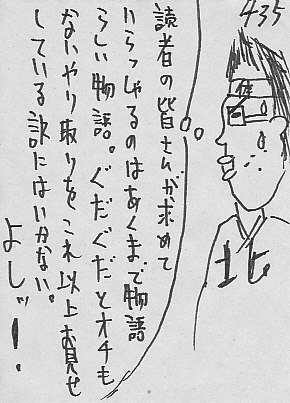 435
読者の皆さんが求めて
いらっしゃるのはあくまで物語
らしい物語。ぐだぐだとオチも
ないやり取りをこれ以上お見せ
している訳にはいかない。
よしッ!